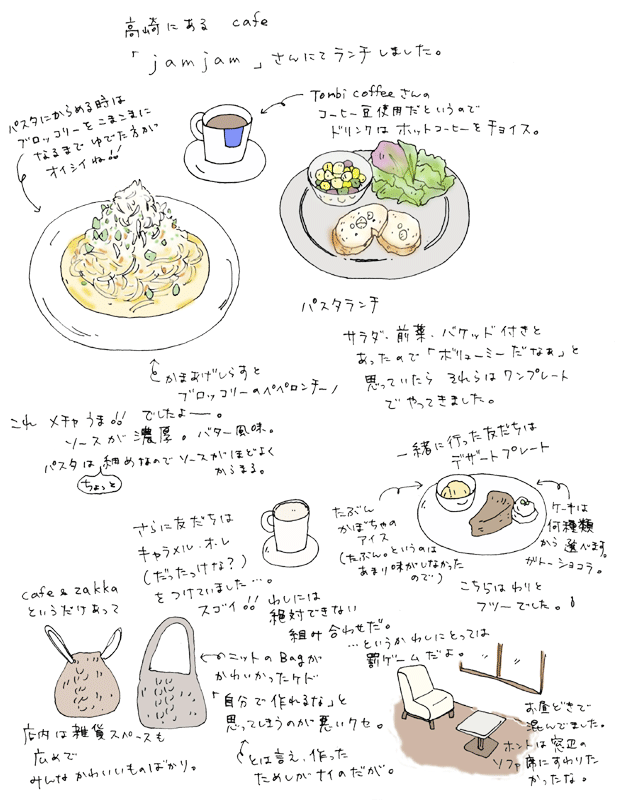 高崎にある cafe
「jamjam」さんにてランチしました。
パスタにからめる時は
ブロッコリーをこまこまに
なるまでゆでた方が
オイシイね!!
Tombi coffeeさんの
コーヒー豆使用だというので
ドリンクはホットコーヒーをチョイス。
パスタランチ
サラダ・前菜・バケッド付きと
あったので「ボリューミーだなぁ」と
思っていたらそれらはワンプレート
でやってきました。
かまあげしらすと
ブロッコリーのペペロンチーノ
これ メチャうま!! でしたよー。
ソースが濃厚。バター風味。
パスタは細めなのでソースがほどよく
からまる。
ちょっと
一緒に行った友だちは
デザートプレート
たぶん
かぼちゃの
アイス
(たぶん。というのは
あまり味がしなかった
ので)
ケーキは
何種類
から選べます。
ガトーショコラ。
こちらはわりと
フツーでした。
さらに友だちは
キャラメル・オ・レ
(だったけな?)
をつけていました…。
スゴイ!! わしには
絶対できない
組み合わせだ。
…というかわしにとっては
罰ゲームだよ。
cafe & zakka
というだけあって
ニットのBagが
かわいかったケド
「自分で作れるな」と
思ってしまうのが悪いクセ。
とは言え、作った
ためしがナイのだが。
店内は雑貨スペースも
広めで
みんなかわいいものばかり。
お昼どきで
混んでました。
ホントは窓辺の
ソファ席にすわりた
かったな。